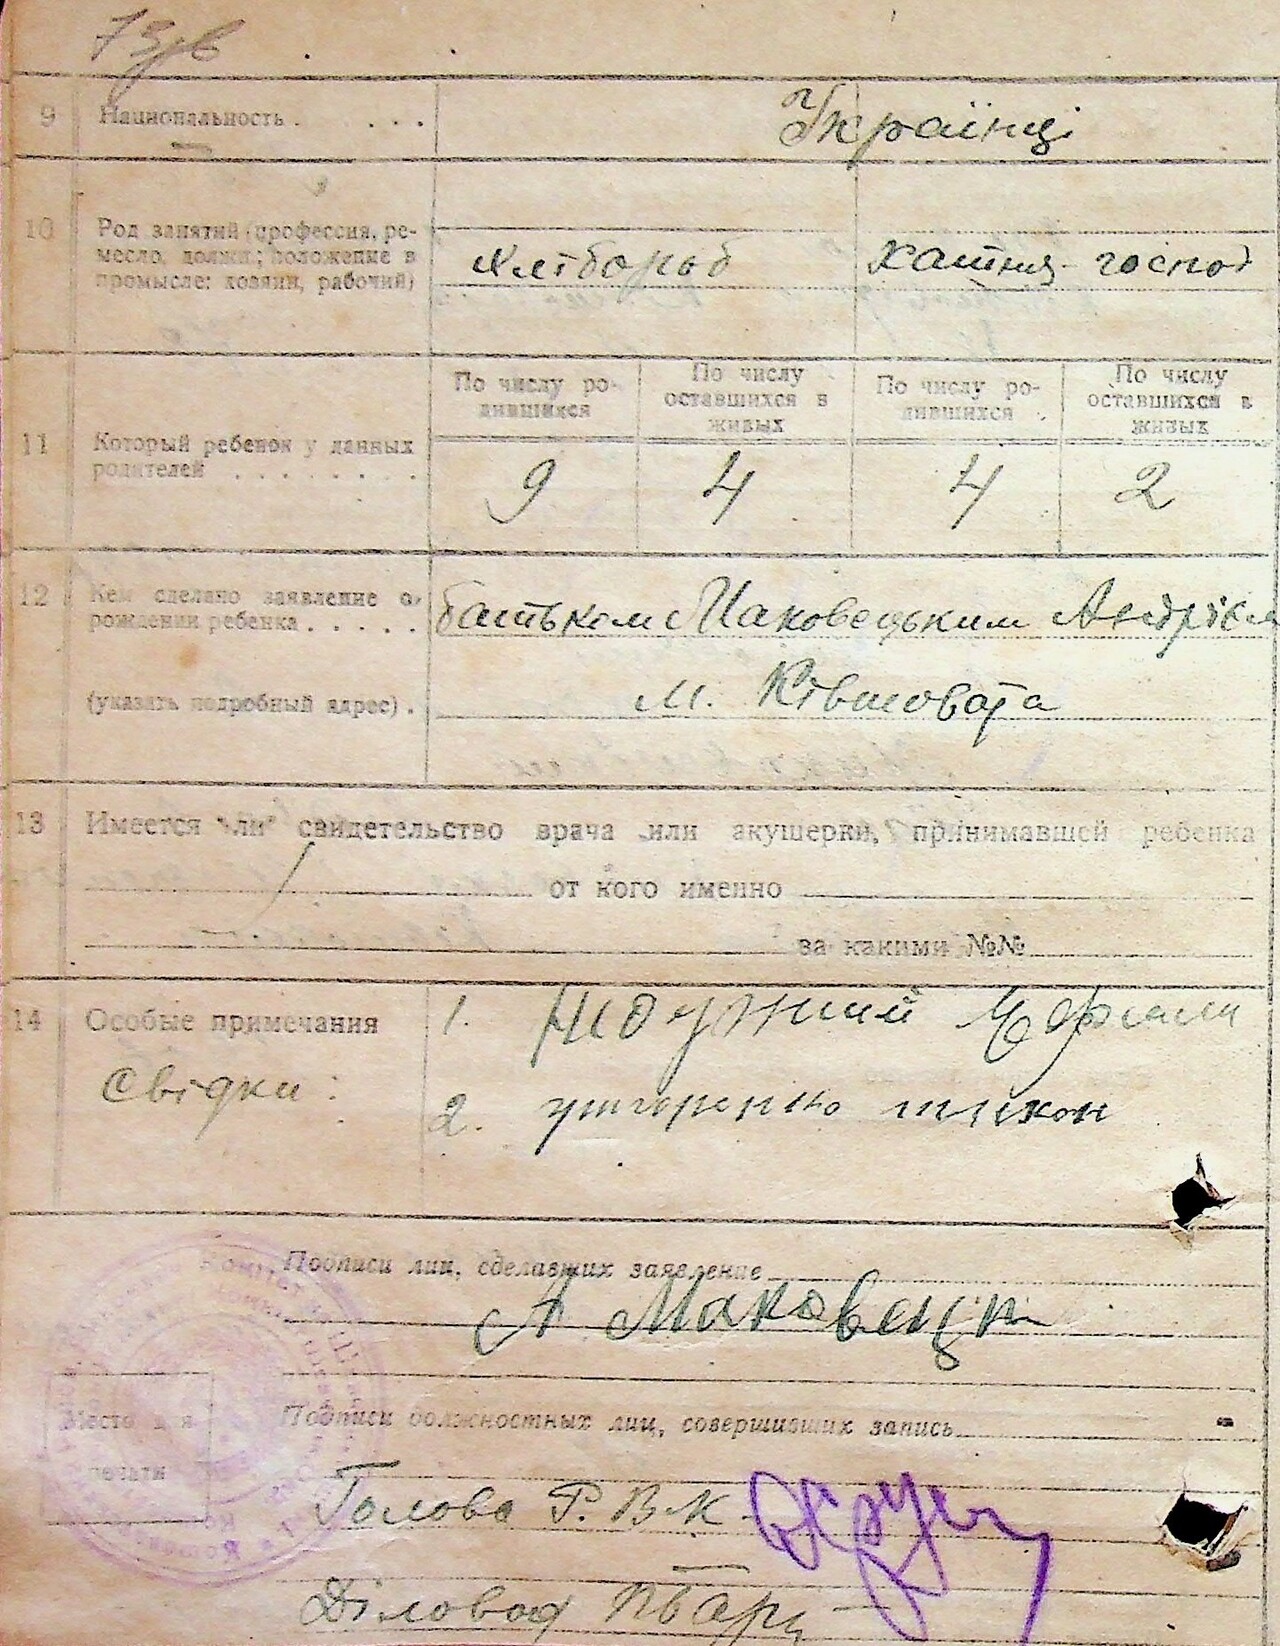 73зв
9 Национальность . . . . Українці
10 Род занятий (профессия, ре-
месло, должн.; положение в
промысле: хозяин, рабочий)
хлібороб хатня госпо
По числу ро-
дившихся
По числу
оставшихся в
живых
По числу ро-
дившихся
По числу
оставшихся в
живых
11 Который ребенок у данных
родителей . . . . . . . .
9 4 4 2
12 Кем сделано заявление о
рождении ребенка . . . . .
батьком Маковецьким Андрієм
(указать подробный адрес) . м. Ківшовата
13 Имеется ли свидетельство врача или акушерки, принимавшей ребенка
/ от кого именно
за какими №№
14 Особые примечания 1.
Свідки: 2.
Подписи лиц, сделавших заявление
А Маковецк
Место для
печати
Подписи должностных лиц, совершивших запись
Голова Р.В.К.
Діловод